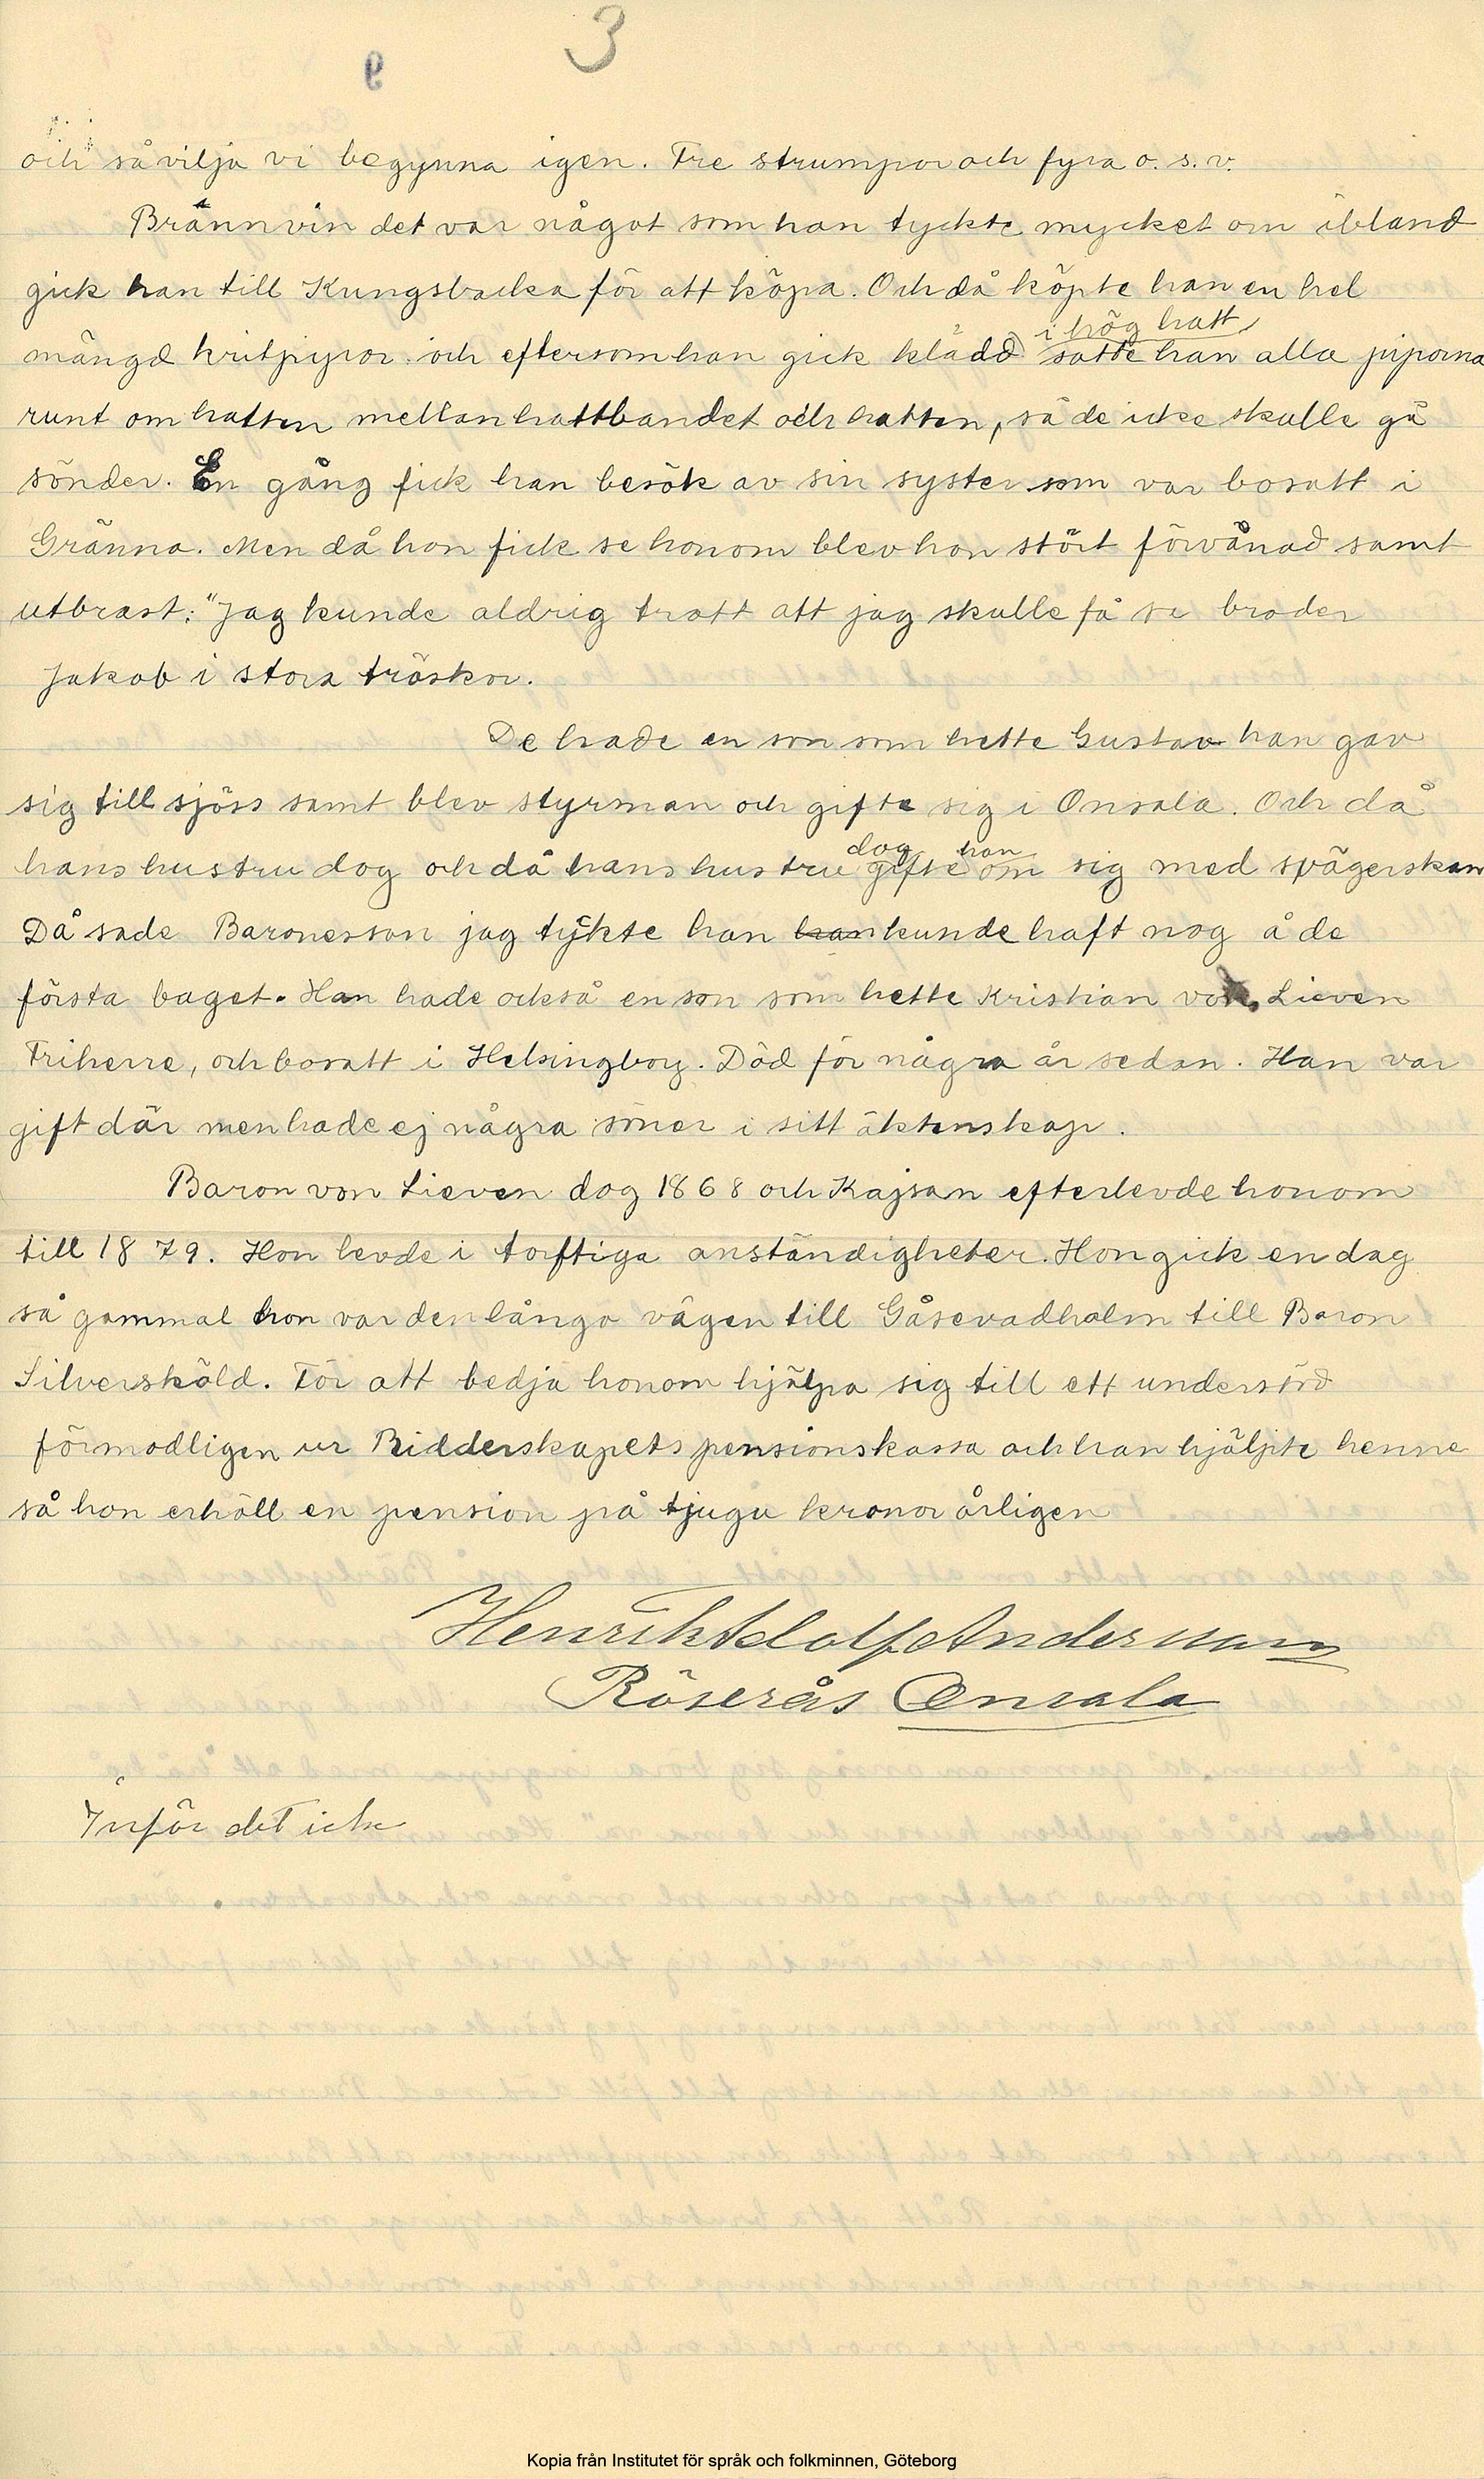 3
9
och så vilja vi begynna igen. Tre strumpor och fyra o. s. v.
Brännvin det var något som han tyckte mycket om ibland
gick han till Kungsbacka för att köpa. Och då köpte han en hel
i hög hatt
mängd kritpipor och eftersom han gick klädd satte han alla piporna
runt om hatten mellan hattbandet och hatten, så de icke skulle gå
sönder. En gång fick han besök av sin syster som var bosatt i
Gränna. Men då hon fick se honom blev hon stört förvånad samt
utbrast: "Jag kunde aldrig trott att jag skulle få se broder
Jakob i stora träskor.
De hade en son som hette Gustav han gav
sig till sjöss samt blev styrman och gifte sig i Onsala. Och då
dog han
hans hustru dog och då hans hustru gifte om sig med svägerskan
Då sade Baronessan jag tyckte han han kunde haft nog å de
första baget. Han hade också en son som hette Kristian von Lieven
Friherre, och bosatt i Helsingborg. Död för några år sedan. Han var
gift där men hade ej några söner i sitt äktenskap.
Baron von Lieven dog 1868 och Kajsan efterlevde honom
till 1879. Hon levde i torftiga anständigheter. Hon gick en dag
så gammal hon var den långa vägen till Gåsevadholm till Baron
Silversköld. För att bedja honom hjälpa sig till ett understöd
förmodligen ur Ridderskapets pensionskassa och han hjälpte henne
så hon erhöll en pension på tjugu kronor årligen
Henrik Adolf Andersson
Röserås Onsala
Inför det icke
Kopia från Institutet för språk och folkminnen, Göteborg